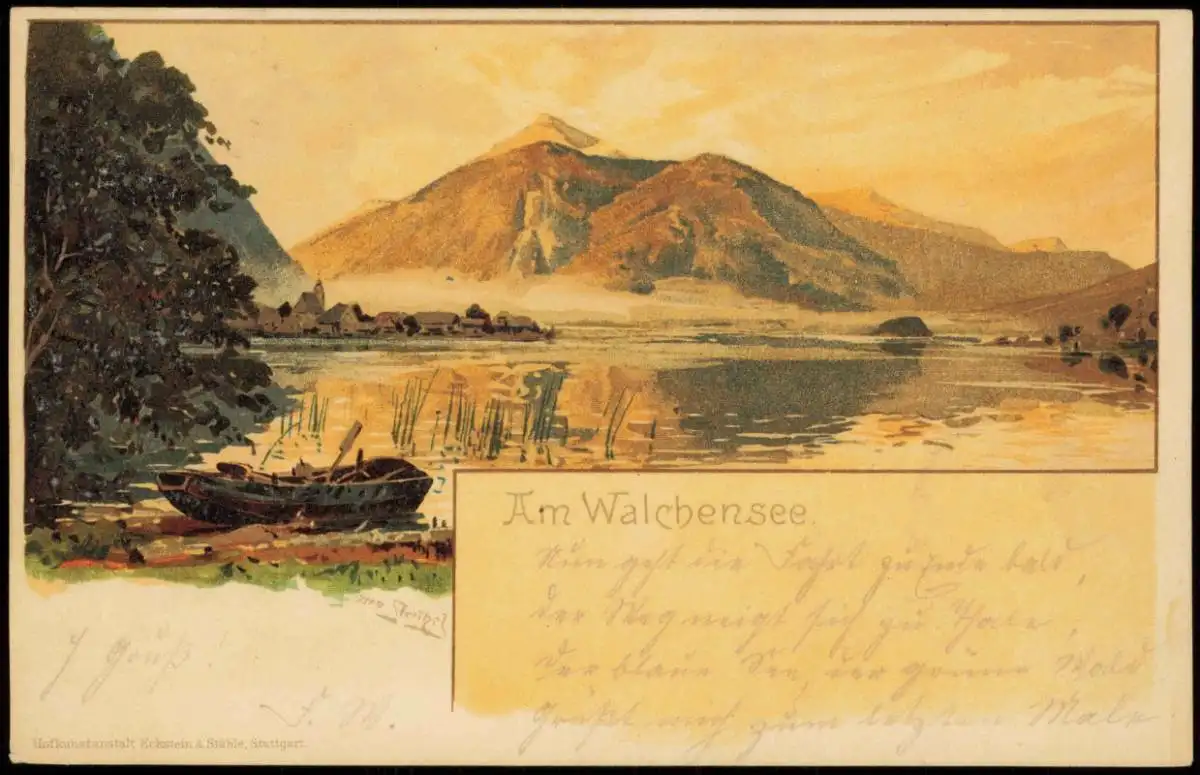 Am Walchensee.
Nun geht die Fahrt zu Ende bald,
der Weg neigt sich zu Thale,
der blaue See, der grüne Wald
Grüßt mich zum letzten Male
Gruß!
F. W.
Hofkunstanstalt Eckstein & Stähle, Stuttgart.